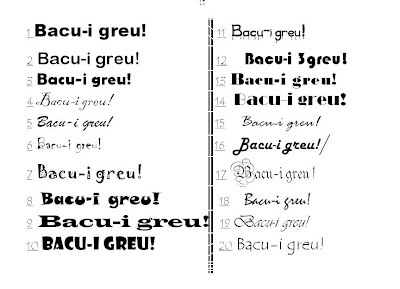 1 Bacu-i greu!
2 Bacu-i greu!
3 Bacu-i greu!
4 Bacu-i greu!
5 Bacu-i greu!
6 Bacu-i greu!
7 Bacu-i greu!
8 Bacu-i greu!
9 Bacu-i greu!
10 BACU-I GREU!
11 Bacu-i greu!
12 Bacu-i greu!
13 Bacu-i greu!
14 Bacu-i greu!
15 Bacu-i greu!
16 Bacu-i greu!/
17 Bacu-i greu!
18 Bacu-i greu!
19 Bacu-i greu!
20 Bacu-i greu!